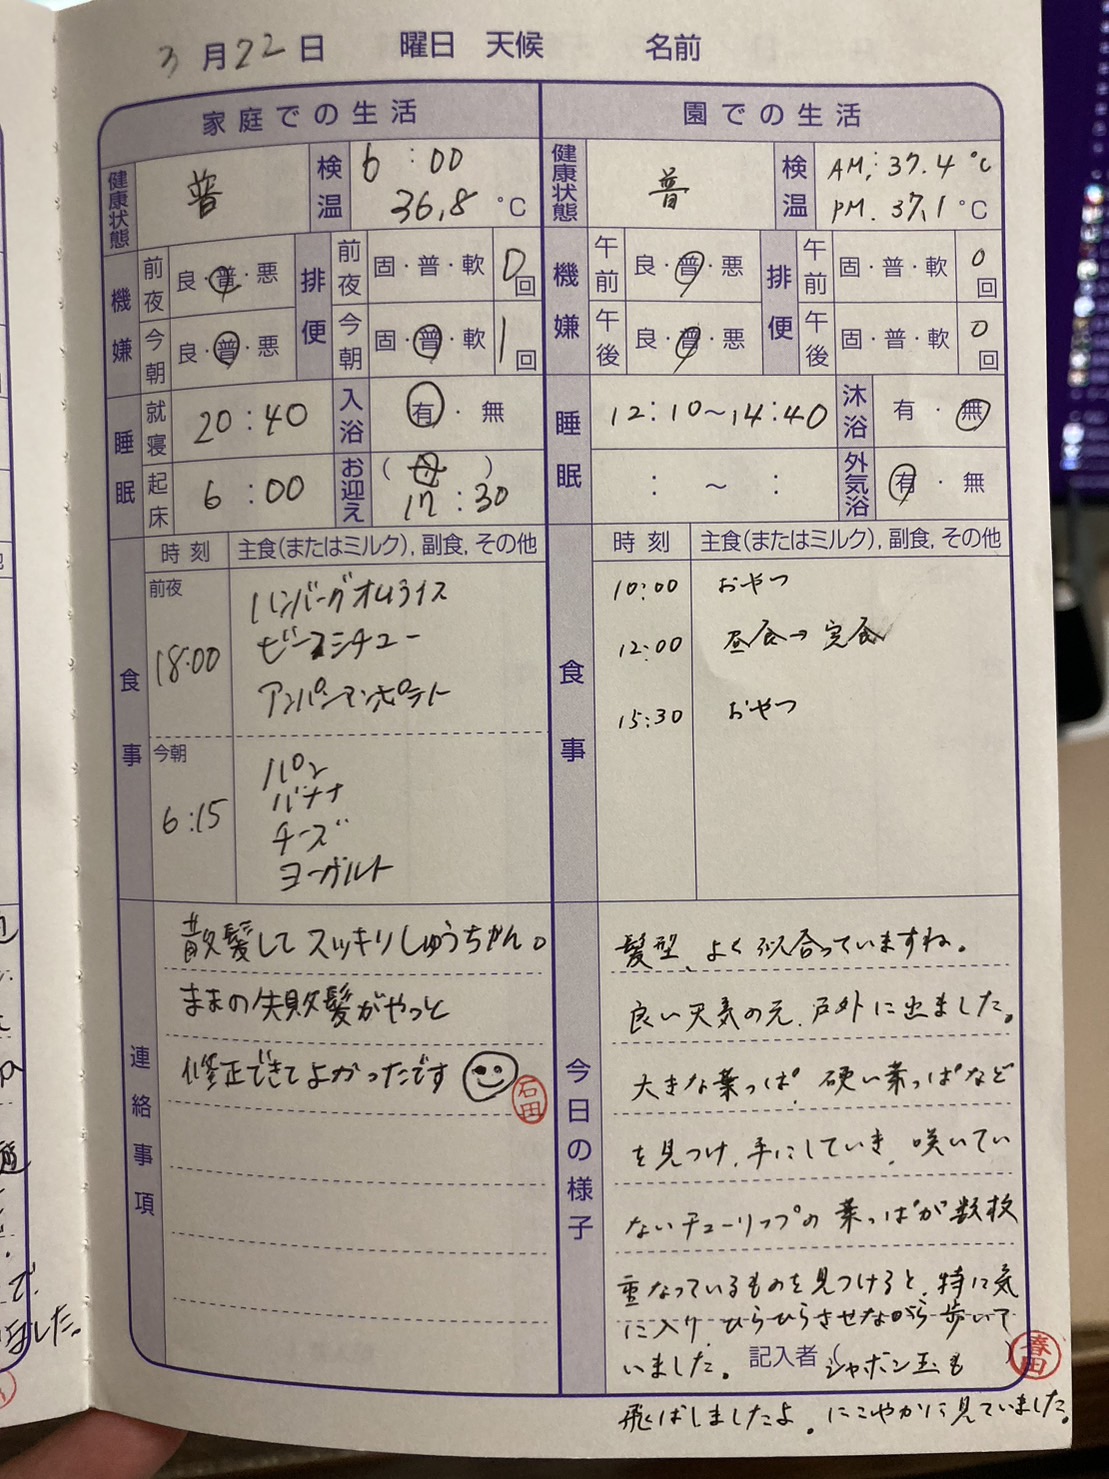 3月22日 曜日 天候 名前
家庭での生活
健康状態 普 検温 6:00
36.8 ℃
機嫌 前夜 良・普・悪 排便 前夜 固・普・軟 0回
今朝 良・普・悪 今朝 固・普・軟 1回
睡眠 就寝 20:40 入浴 有・無
起床 6:00 お迎え (母)
17:30
食事 時刻 主食(またはミルク),副食,その他
前夜
18:00
ハンバーグオムライス
ビーフシチュー
アンパンマンポテト
今朝
6:15
パン
バナナ
チーズ
ヨーグルト
連絡事項
散髪してスッキリしゅうちゃん。
ままの失敗髪がやっと
修正できてよかったです
石田
園での生活
健康状態 普 検温 AM. 37.4 ℃
PM. 37.1 ℃
機嫌 午前 良・普・悪 排便 午前 固・普・軟 0回
午後 良・普・悪 午後 固・普・軟 0回
睡眠 12:10～14:40 沐浴 有・無
: ～ : 外気浴 有・無
食事 時刻 主食(またはミルク),副食,その他
10:00 おやつ
12:00 昼食→完食
15:30 おやつ
今日の様子
髪型、よく似合っていますね。
良い天気の元、戸外に出ました。
大きな葉っぱ、硬い葉っぱなど
を見つけ、手にしていき、咲いてい
ないチューリップの葉っぱが数枚
重なっているものを見つけると、特に気
に入り、ひらひらさせながら歩いて
いました。 記入者( シャボン玉も )
春田
飛ばしましたよ。にこやかに見ていました。